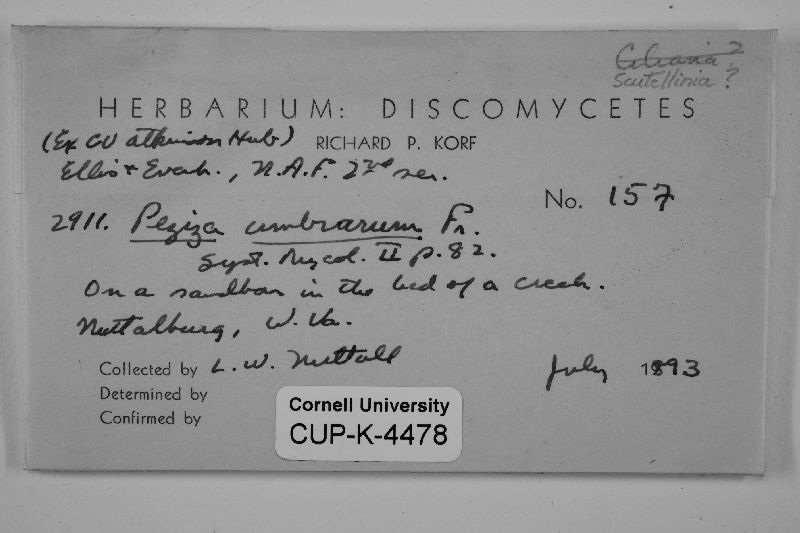 Ciliaria ?
Scutellinia ?
HERBARIUM: DISCOMYCETES
(Ex CU Atkinson Herb) RICHARD P. KORF
Ellis & Everh., N.A.F. 2nd ser.
No. 157
2911. Peziza umbrarum Fr.
Syst. Mycol. II p. 82.
On a sandbar in the bed of a creek.
Nuttalburg, W. Va.
Collected by L. W. Nuttall July 1893
Determined by
Confirmed by
Cornell University
CUP-K-4478